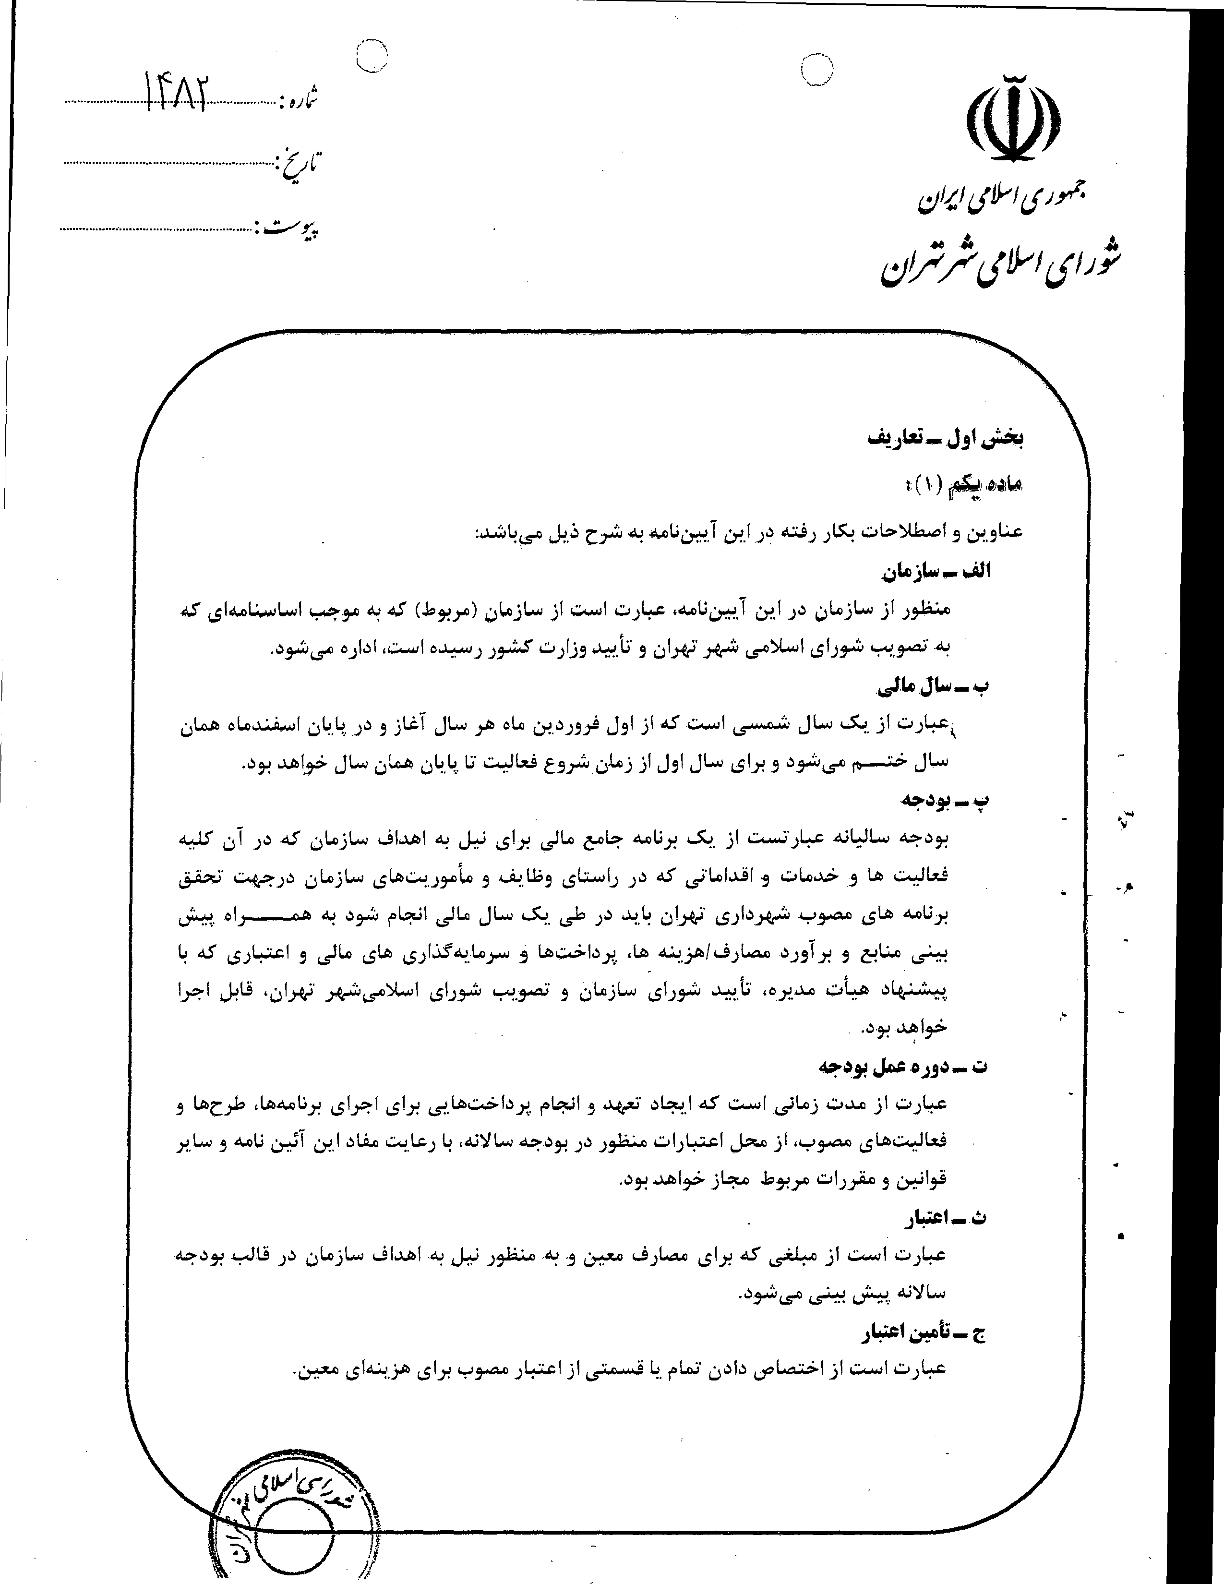 جمهوری اسلامی ایران
شورای اسلامی شهر تهران
شماره: ۱۴۸۲
تاریخ:
پیوست:
بخش اول ـ تعاریف
ماده یکم (۱):
عناوین و اصطلاحات بکار رفته در این آیین‌نامه به شرح ذیل می‌باشد:
الف ـ سازمان
منظور از سازمان در این آیین‌نامه، عبارت است از سازمان (مربوط) که به موجب اساسنامه‌ای که
به تصویب شورای اسلامی شهر تهران و تأیید وزارت کشور رسیده است، اداره می‌شود.
ب ـ سال مالی
عبارت از یک سال شمسی است که از اول فروردین ماه هر سال آغاز و در پایان اسفندماه همان
سال ختـــم می‌شود و برای سال اول از زمان شروع فعالیت تا پایان همان سال خواهد بود.
پ ـ بودجه
بودجه سالیانه عبارتست از یک برنامه جامع مالی برای نیل به اهداف سازمان که در آن کلیه
فعالیت ها و خدمات و اقداماتی که در راستای وظایف و مأموریت‌های سازمان درجهت تحقق
برنامه های مصوب شهرداری تهران باید در طی یک سال مالی انجام شود به همــــراه پیش
بینی منابع و برآورد مصارف/هزینه ها، پرداخت‌ها و سرمایه‌گذاری های مالی و اعتباری که با
پیشنهاد هیأت مدیره، تأیید شورای سازمان و تصویب شورای اسلامی‌شهر تهران، قابل اجرا
خواهد بود.
ت ـ دوره عمل بودجه
عبارت از مدت زمانی است که ایجاد تعهد و انجام پرداخت‌هایی برای اجرای برنامه‌ها، طرح‌ها و
فعالیت‌های مصوب، از محل اعتبارات منظور در بودجه سالانه، با رعایت مفاد این آئین نامه و سایر
قوانین و مقررات مربوط مجاز خواهد بود.
ث ـ اعتبار
عبارت است از مبلغی که برای مصارف معین و به منظور نیل به اهداف سازمان در قالب بودجه
سالانه پیش بینی می‌شود.
ج ـ تأمین اعتبار
عبارت است از اختصاص دادن تمام یا قسمتی از اعتبار مصوب برای هزینه‌ای معین.
شورای اسلامی شهر تهران